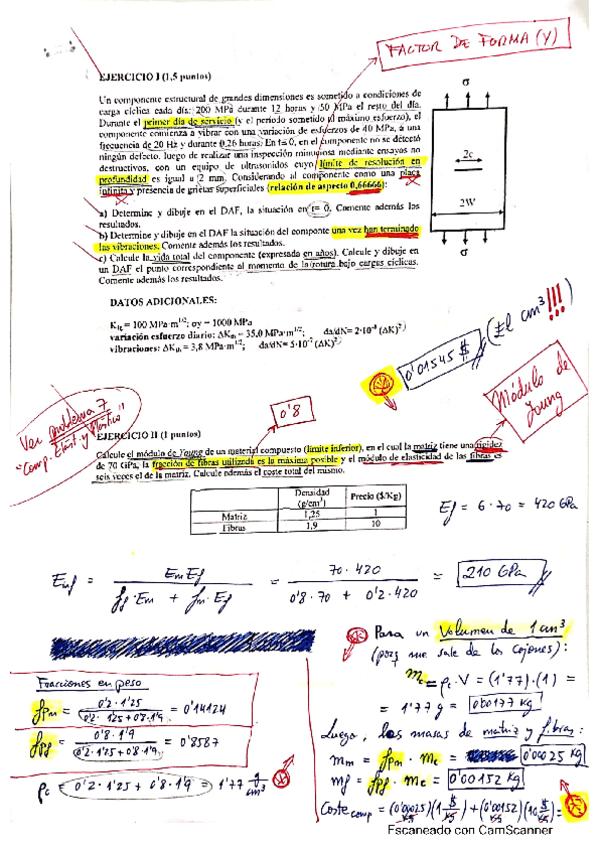 FACTOR DE FORMA (Y)
EJERCICIO I (1,5 puntos)
Un componente estructural de grandes dimensiones es sometido a condiciones de
carga cíclica cada día: 200 MPa durante 12 horas y 50 MPa el resto del día.
Durante el primer día de servicio (y el período sometido al máximo esfuerzo), el
componente comienza a vibrar con una variación de esfuerzos de 40 MPa, a una
frecuencia de 20 Hz y durante 0,26 horas. En t= 0, en el componente no se detectó
ningún defecto, luego de realizar una inspección minuciosa mediante ensayos no
destructivos, con un equipo de ultrasonidos cuyo límite de resolución en
profundidad es igual a 2 mm. Considerando al componente como una placa
infinita y presencia de grietas superficiales (relación de aspecto 0,66666):
a) Determine y dibuje en el DAF, la situación en t= 0. Comente además los
resultados.
b) Determine y dibuje en el DAF la situación del componente una vez han terminado
las vibraciones. Comente además los resultados.
c) Calcule la vida total del componente (expresada en años). Calcule y dibuje en
un DAF el punto correspondiente al momento de la rotura bajo cargas cíclicas.
Comente además los resultados.
σ
2c
2W
σ
DATOS ADICIONALES:
K1c = 100 MPa·m^1/2; σy = 1000 MPa
variación esfuerzo diario: ΔKth = 35,0 MPa·m^1/2; da/dN= 2·10^-8 (ΔK)^2
vibraciones: ΔKth = 3,8 MPa·m^1/2; da/dN= 5·10^-7 (ΔK)^2
0'01545 $ (El cm³!!!)
Módulo de
Young
Ver problema 7
"Comp. Elást. y Plástico"
0'8
EJERCICIO II (1 puntos)
Calcule el módulo de Young de un material compuesto (límite inferior), en el cual la matriz tiene una rigidez
de 70 GPa, la fracción de fibras utilizada es la máxima posible y el módulo de elasticidad de las fibras es
seis veces el de la matriz. Calcule además el coste total del mismo.
Densidad (g/cm³) Precio ($/Kg)
Matriz 1,25 1
Fibras 1,9 10
Ef = 6·70 = 420 GPa
Emf = EmEf / (ff·Em + fm·Ef) = 70·420 / (0'8·70 + 0'2·420) = 210 GPa
Para un Volumen de 1 cm³
(porq me sale de los cojones):
Fracciones en peso
fpm = 0'2·1'25 / (0'2·1'25+0'8·1'9) = 0'14124
fpf = 0'8·1'9 / (0'2·1'25+0'8·1'9) = 0'8587
ρc = 0'2·1'25 + 0'8·1'9 = 1'77 g/cm³
mc = ρc·V = (1'77)·(1) =
= 1'77 g = 0'00177 kg
Luego, las masas de matriz y fibras:
mm = fpm · mc = 0'00025 kg
mf = fpf · mc = 0'00152 kg
Coste comp = (0'00025)(1 $/kg) + (0'00152)(10 $/kg) =
Escaneado con CamScanner